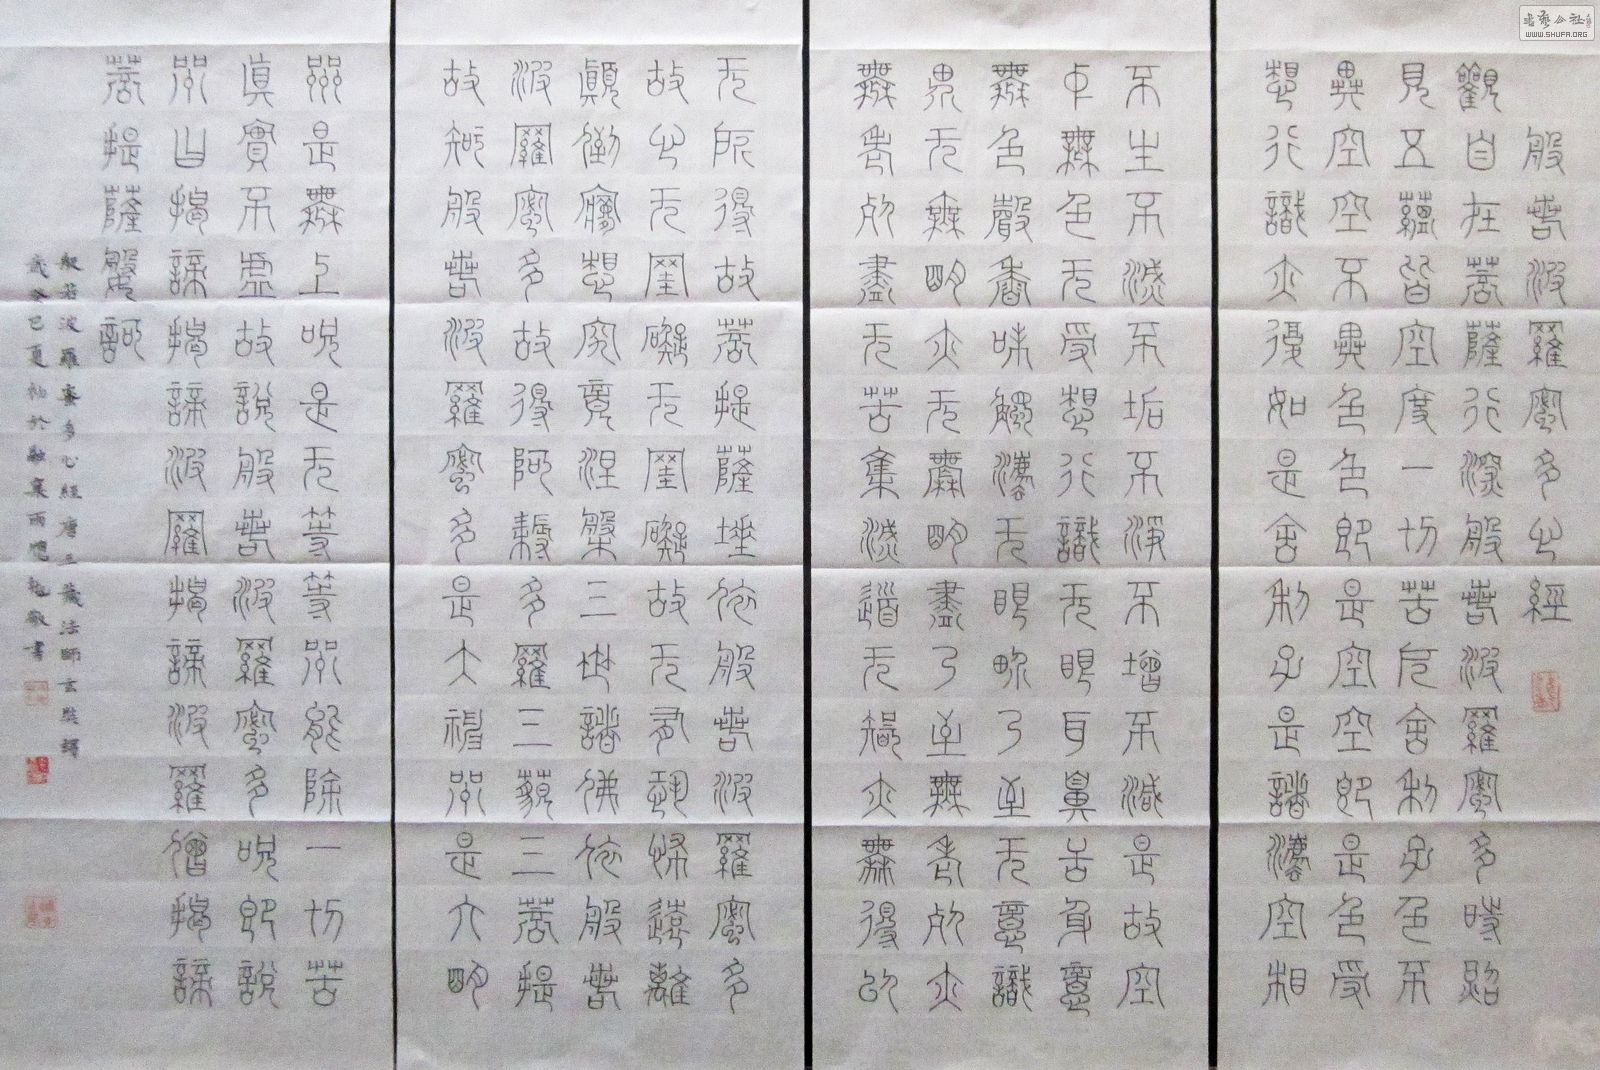 般若波羅蜜多心經
觀自在菩薩行深般若波羅蜜多時照
見五蘊皆空度一切苦厄舍利子色不
異空空不異色色即是空空即是色受
想行識亦復如是舍利子是諸法空相
不生不滅不垢不淨不增不減是故空
中無色无受想行識无眼耳鼻舌身意
無色聲香味觸法无眼界乃至无意識
界无無明亦无無明盡乃至無老死亦
無老死盡无苦集滅道无智亦無得以
无所得故菩提薩埵依般若波羅蜜多
故心无罣礙无罣礙故无有恐怖遠離
顛倒夢想究竟涅槃三世諸佛依般若
波羅蜜多故得阿耨多羅三藐三菩提
故知般若波羅蜜多是大神咒是大明
咒是無上呪是无等等咒能除一切苦
眞實不虛故說般若波羅蜜多呪即說
咒曰揭諦揭諦波羅揭諦波羅僧揭諦
菩提薩婆訶
般若波羅蜜多心經唐三藏法師玄奘譯
歲癸巳夏初於融雨敬書
书艺公社
WWW.SHUFA.ORG